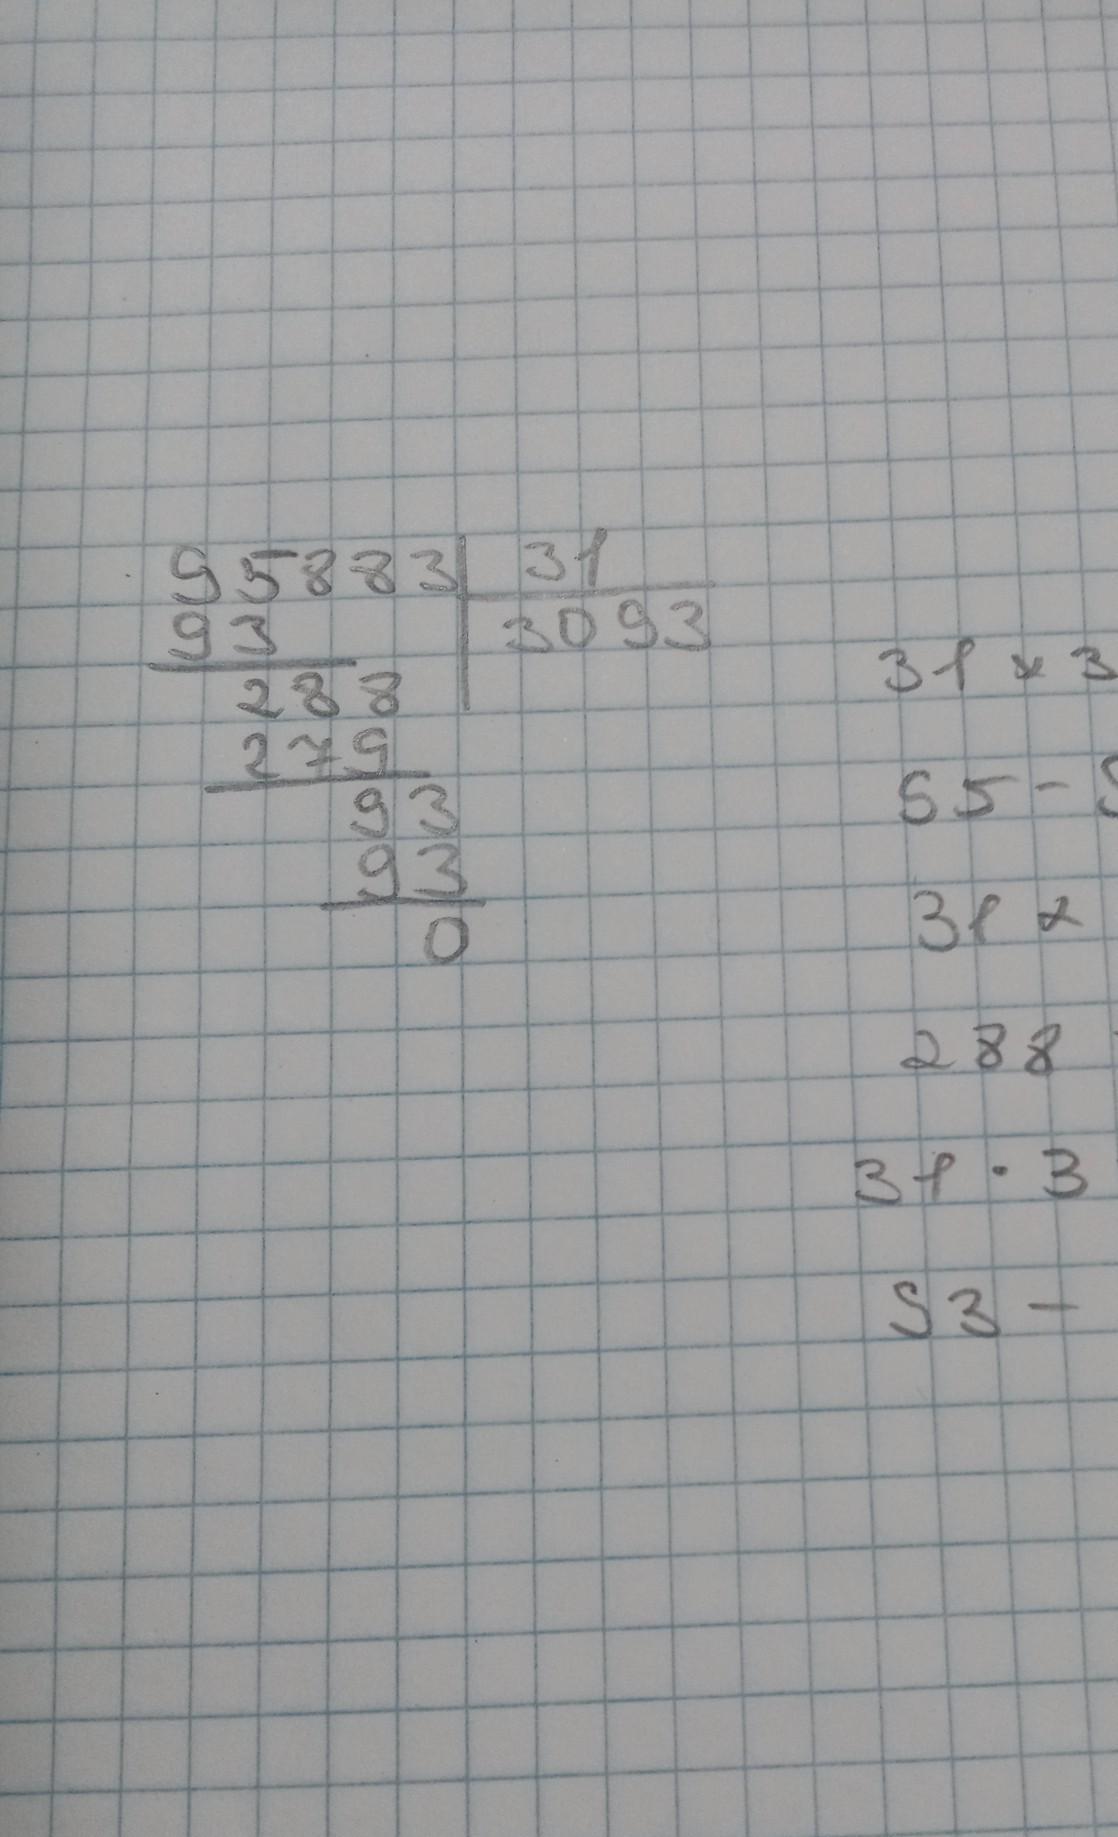 95883 31
93 3093
288
279
93
93
0
31 x 3
95 -
31 x
288
31 · 3
93 -